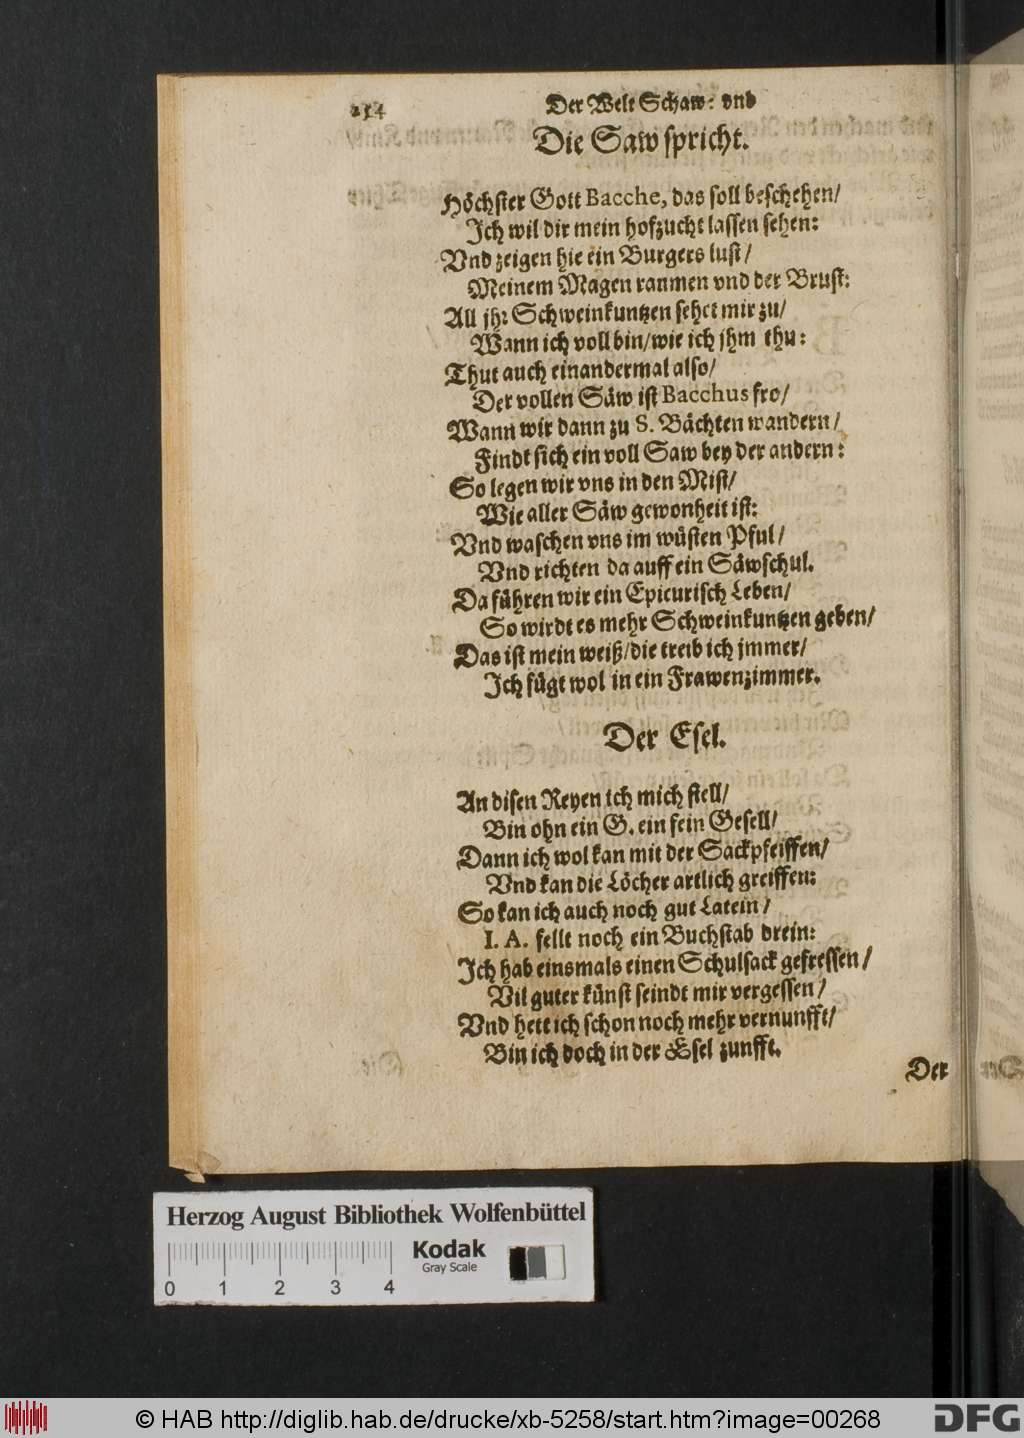 254
Der Welt Schaw: vnd
Die Saw spricht.
Höchster Gott Bacche, das soll beschehen/
Ich wil dir mein hofzucht lassen sehen:
Vnd zeigen hie ein Burgers lust/
Meinem Magen raumen vnd der Brust:
All jhr Schweinkuntzen sehet mir zu/
Wann ich voll bin/wie ich jhm thu:
Thut auch einandermal also/
Der vollen Säw ist Bacchus fro/
Wann wir dann zu S. Bächten wandern/
Findt sich ein voll Saw bey der andern:
So legen wir vns in den Mist/
Wie aller Säw gewonheit ist:
Vnd waschen vns im wüsten Pful/
Vnd richten da auff ein Säwschul.
Da führen wir ein Epicurisch Leben/
So wirdt es mehr Schweinkuntzen geben/
Das ist mein weiß/die treib ich jmmer/
Ich fügt wol in ein Frawenzimmer.
Der Esel.
An disen Reyen ich mich stell/
Bin ohn ein G. ein fein Gesell/
Dann ich wol kan mit der Sackpfeiffen/
Vnd kan die Löcher artlich greiffen:
So kan ich auch noch gut Latein/
I. A. fellt noch ein Buchstab drein:
Ich hab einsmals einen Schulsack gefressen/
Vil guter künst seindt mir vergessen/
Vnd hett ich schon noch mehr vernunfft/
Bin ich doch in der Esel zunfft.
Der
Herzog August Bibliothek Wolfenbüttel
Kodak
Gray Scale
0 1 2 3 4
© HAB http://diglib.hab.de/drucke/xb-5258/start.htm?image=00268
DFG